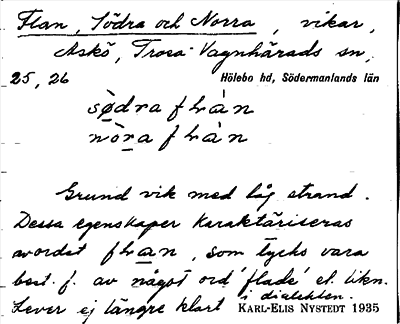 Flan, Södra och Norra, vikar,
Askö, Trosa-Vagnhärads sn,
25, 26 Hölebo hd, Södermanlands län
sødra flan
nòra flan
Grund vik med låg strand.
Dessa egenskaper karaktäriseras
av ordet flan, som tycks vara
best. f. av något ord 'flade' el. likn.
Lever ej längre klart i dialekten. KARL-ELIS NYSTEDT 1935